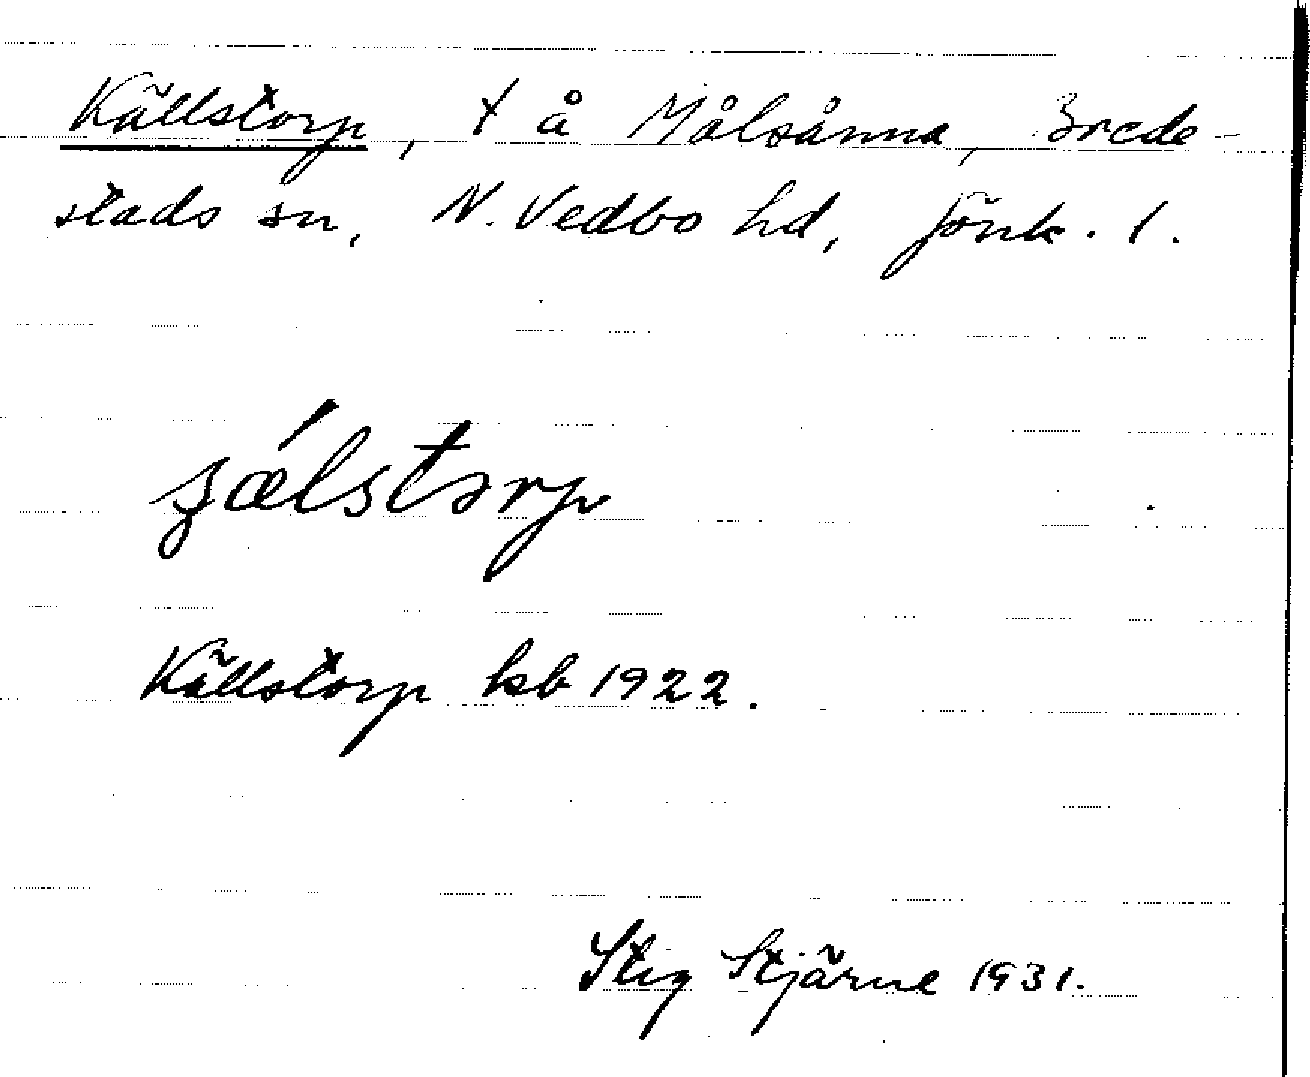 Källstorp, t å Målsånna, Brede-
stads sn, N. Vedbo hd, Jönk. l.
ʒǽlstorp
Källstorp ksb 1922.
Stig Stjärne 1931.